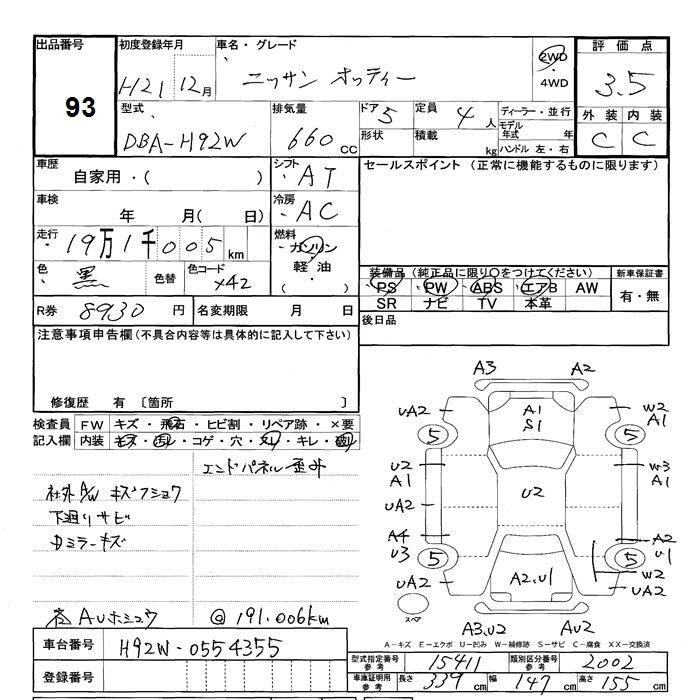 出品番号 初度登録年月 車名・グレード 評価点
93 H21 12月 ニッサン オッティー 2WD・4WD 3.5
型式 排気量 ドア 5 定員 4人 ディーラー・並行 外装 内装
DBA-H92W 660cc 形状 積載 kg モデル年式 年 ハンドル 左・右 C C
車歴 自家用・( ) シフト ・AT セールスポイント (正常に機能するものに限ります)
車検 年 月( 日) 冷房 ・AC
走行 19万1千005km 燃料 ・ガソリン・軽油・( )
色 黒 色替 色コード X42 装備品(純正品に限り○をつけてください) 新車保証書
PS PW ABS エアB AW 有・無
SR ナビ TV 本革
R券 8930円 名変期限 月 日 後日品
注意事項申告欄(不具合内容等は具体的に記入して下さい)
修復歴 有 〔箇所 〕
検査員記入欄 FW キズ・飛石・ヒビ割・リペア跡・×要
内装 キズ・汚れ・コゲ・穴・スレ・キレ・
エンドパネル歪み
社外A/W キズフショク
下廻りサビ
ミラーキズ
AUホショウ @191.006km
A3 A2
UA2 A1 S1 W2 A1
5 5
U2 A1 U2 W3 A1
UA2
A4 U3 A2 U1
5 5
W2
UA2 A2.U1 UA2
スペア A3.U2 AU2
A-キズ E-エクボ U-凹み W-補修跡 S-サビ C-腐食 XX-交換済
車台番号 H92W-0554355
型式指定番号参考 15411 類別区分番号参考 2002
登録番号 車庫証明用参考 長さ 339cm 幅 147cm 高さ 155cm